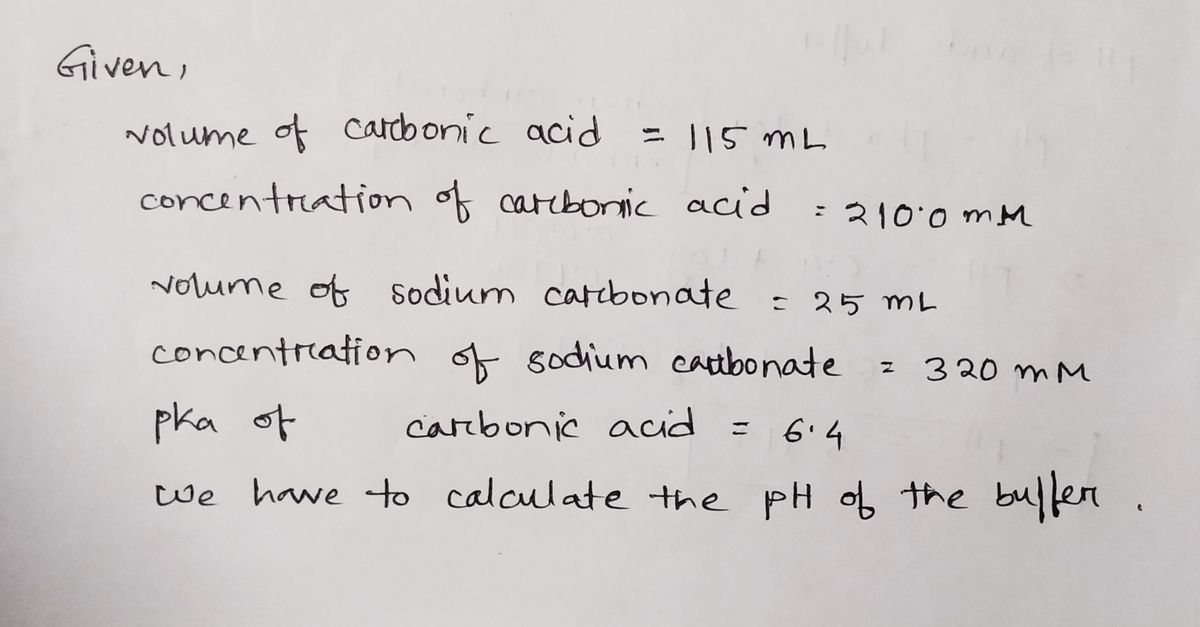 Given,
volume of carbonic acid = 115 mL
concentration of carbonic acid = 210.0 mM
volume of sodium carbonate = 25 mL
concentration of sodium carbonate = 320 mM
pka of carbonic acid = 6.4
we have to calculate the pH of the buffer.